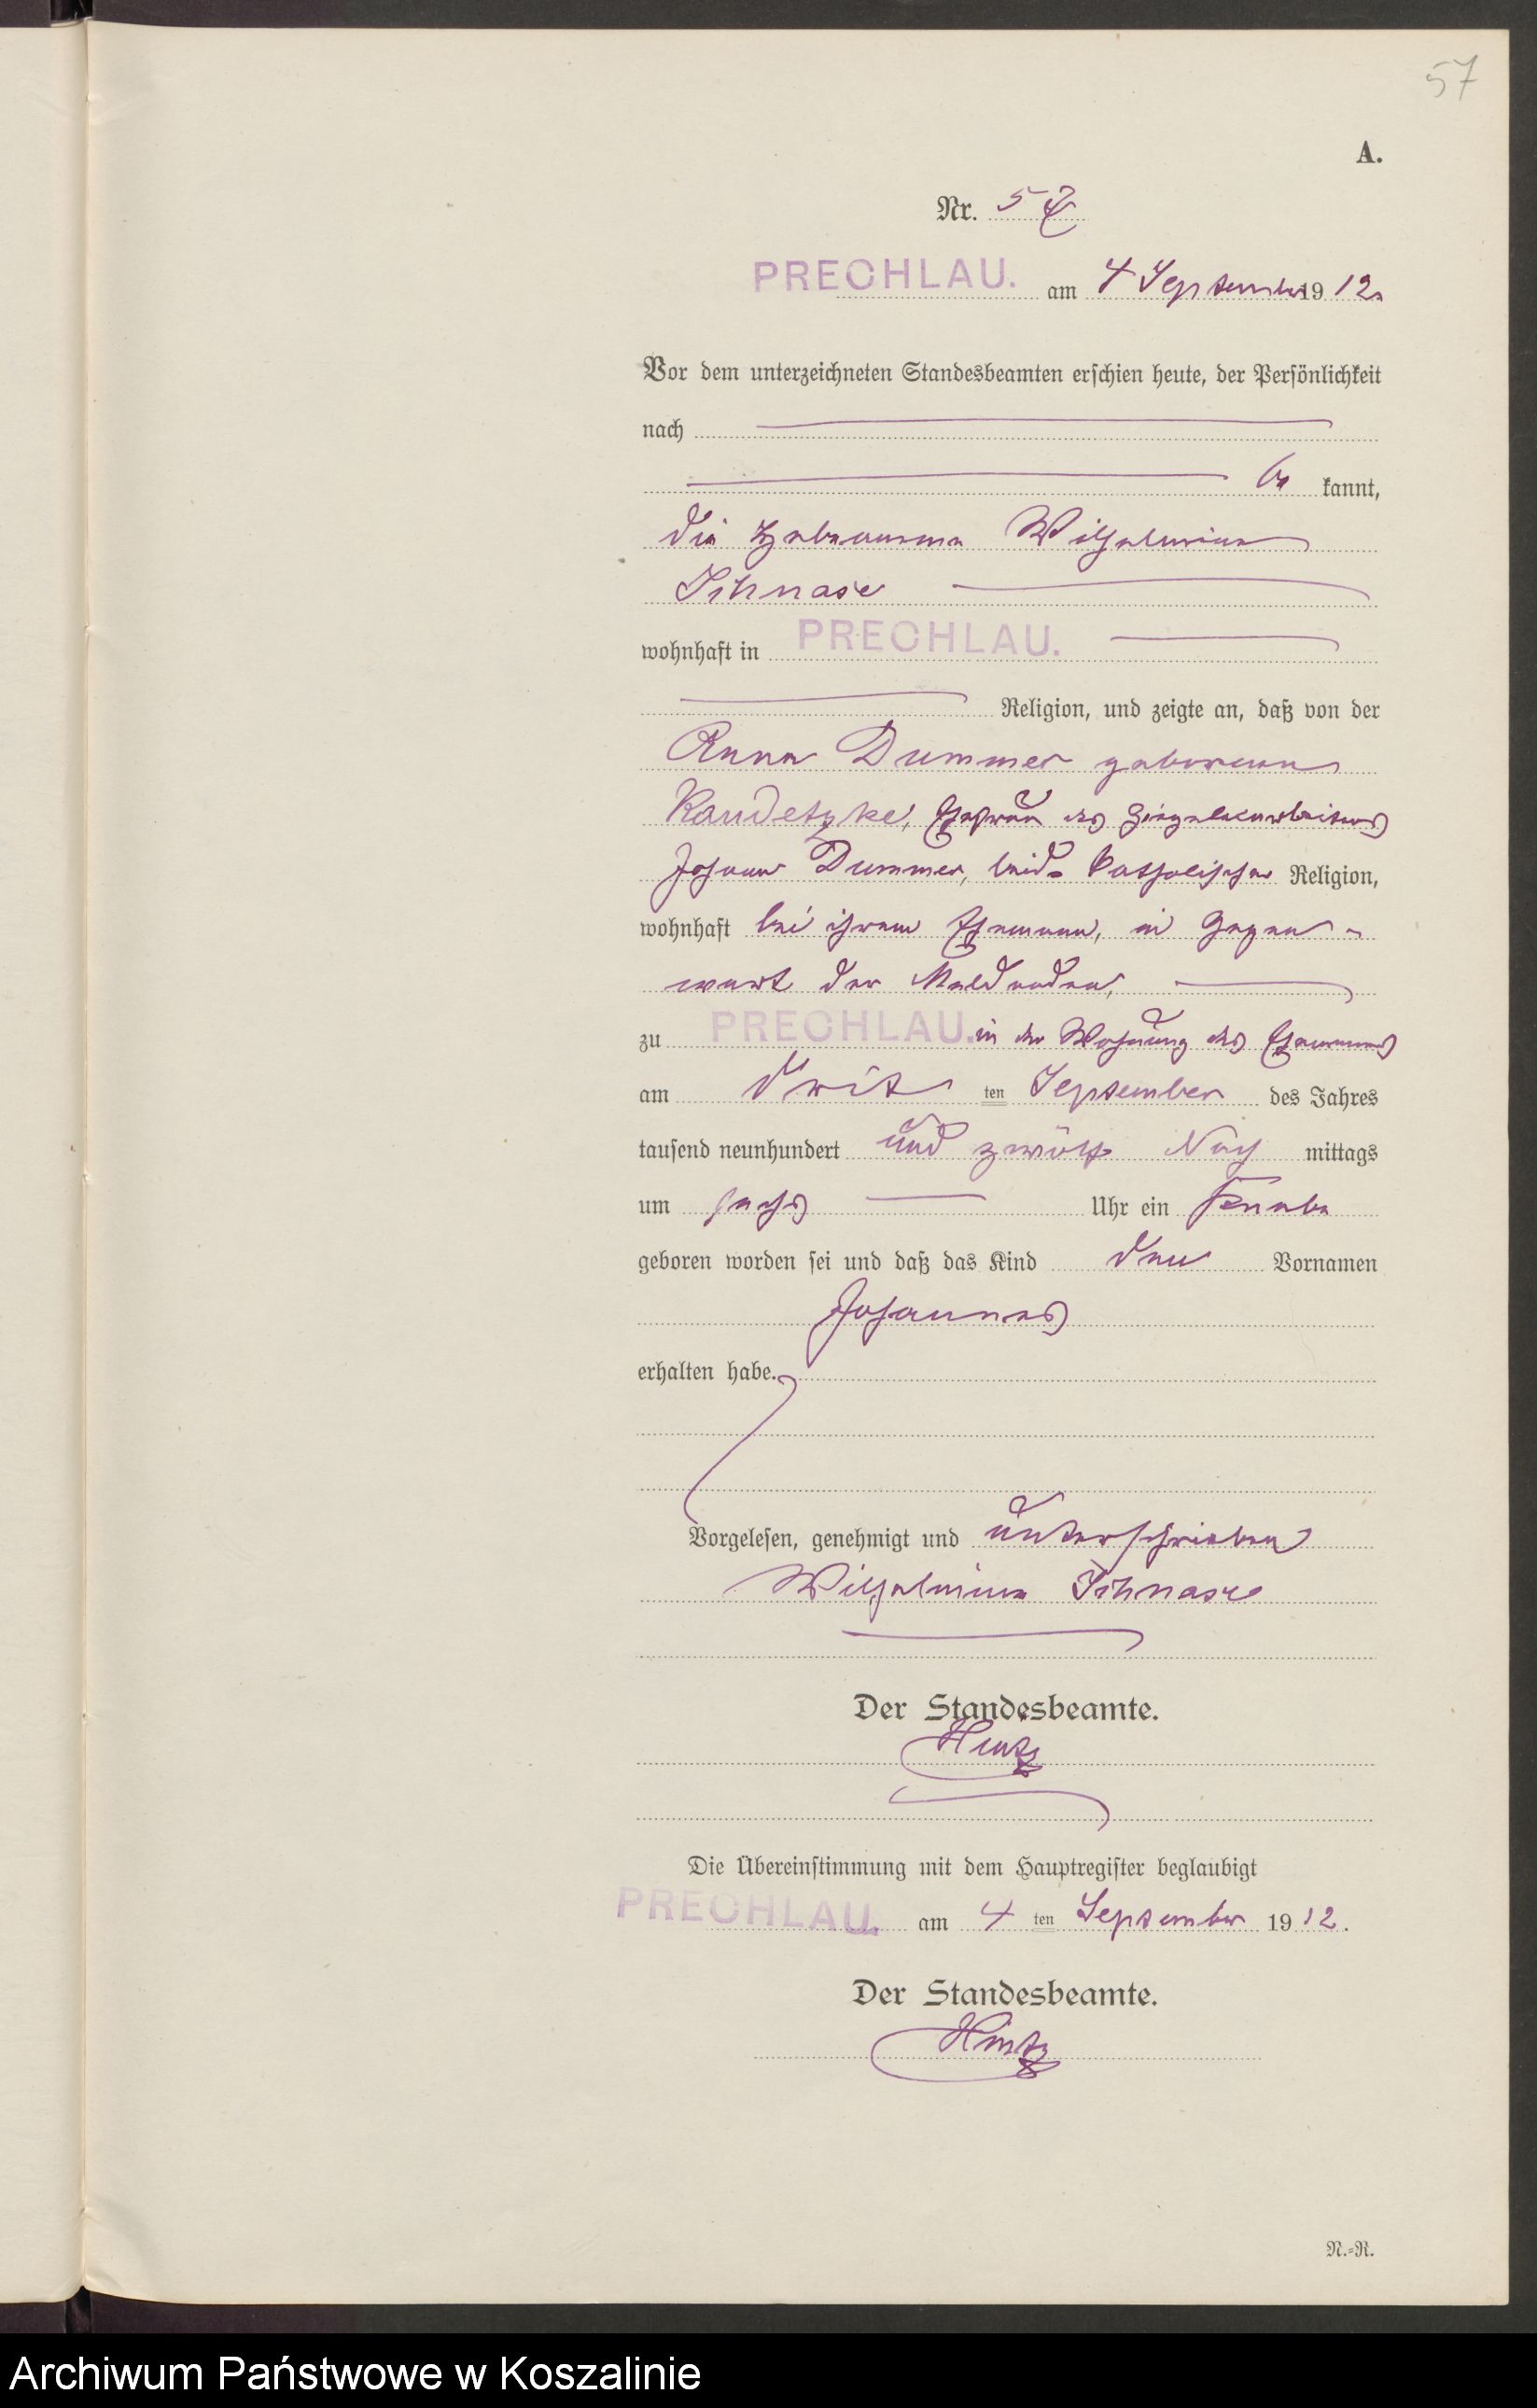 57
A.
Nr. 57
PRECHLAU. am 4 September 1912.
Vor dem unterzeichneten Standesbeamten erschien heute, der Persönlichkeit
nach
be kannt,
die Hebamme Wilhelmine
wohnhaft in PRECHLAU.
Religion, und zeigte an, daß von der
Anna Dummer geborenen
Kaudetzke, Ehefrau des Ziegeleiarbeiters
Johann Dummer, beide katholischer Religion,
wohnhaft bei ihrem Ehemann, in Gegen-
wart der Meldenden,
zu PRECHLAU. in der Wohnung des Ehemannes
am dritten September des Jahres
tausend neunhundert und zwölf Nach mittags
um sechs Uhr ein Knabe
geboren worden sei und daß das Kind den Vornamen
Johannes
erhalten habe.
Vorgelesen, genehmigt und unterschrieben
Wilhelmine
Der Standesbeamte.
Hintz
Die Übereinstimmung mit dem Hauptregister beglaubigt
PRECHLAU. am 4 ten September 1912.
Der Standesbeamte.
Hintz
N.-R.
Archiwum Państwowe w Koszalinie